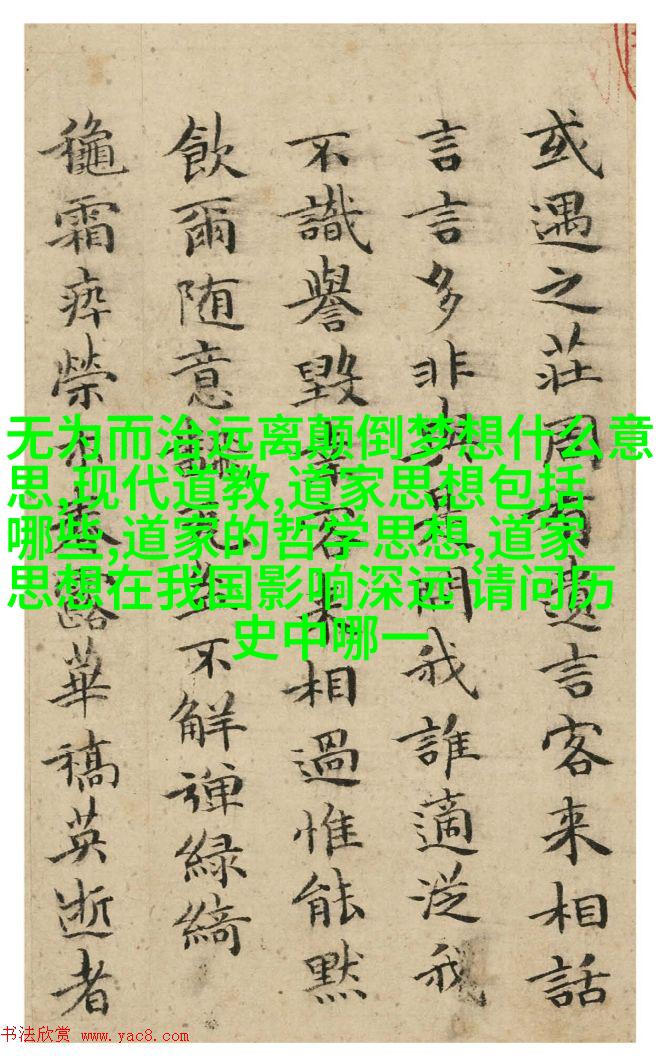 或遇之莊周遺言客来相話
言言多非與是問我誰適從我
不識譽毀客来相過惟能默
飲爾随意不解弹緑綺
穐霜瘁榮木春露華稿英逝者
无为而治远离颠倒梦想什么意
思,现代道教,道家思想包括
哪些,道家的哲学思想,道家
思想在我国影响深远 请问历
史中哪一
书法欣赏 www.yac8.com